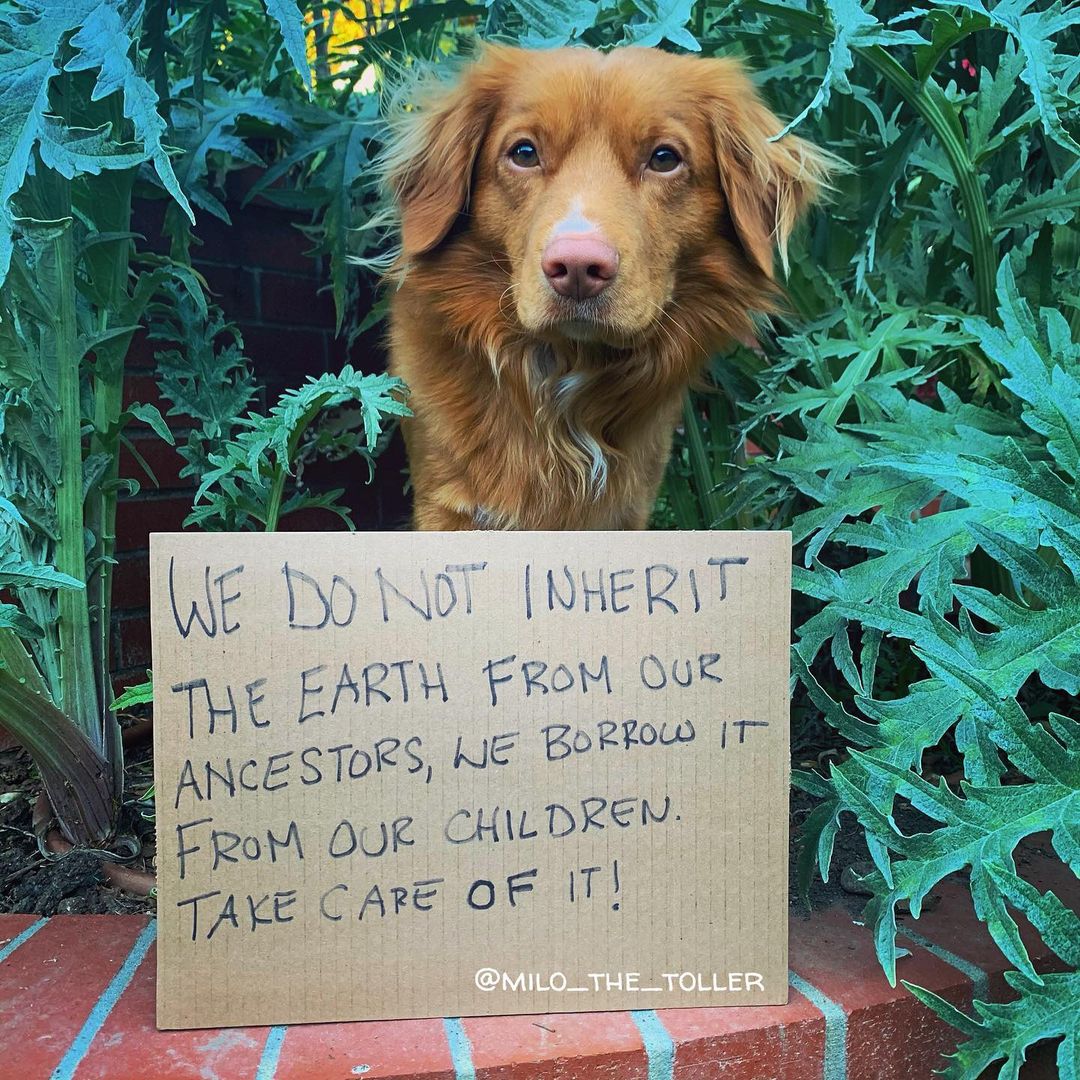 WE DO NOT INHERIT
THE EARTH FROM OUR
ANCESTORS, WE BORROW IT
FROM OUR CHILDREN.
TAKE CARE OF IT!
@MILO_THE_TOLLER